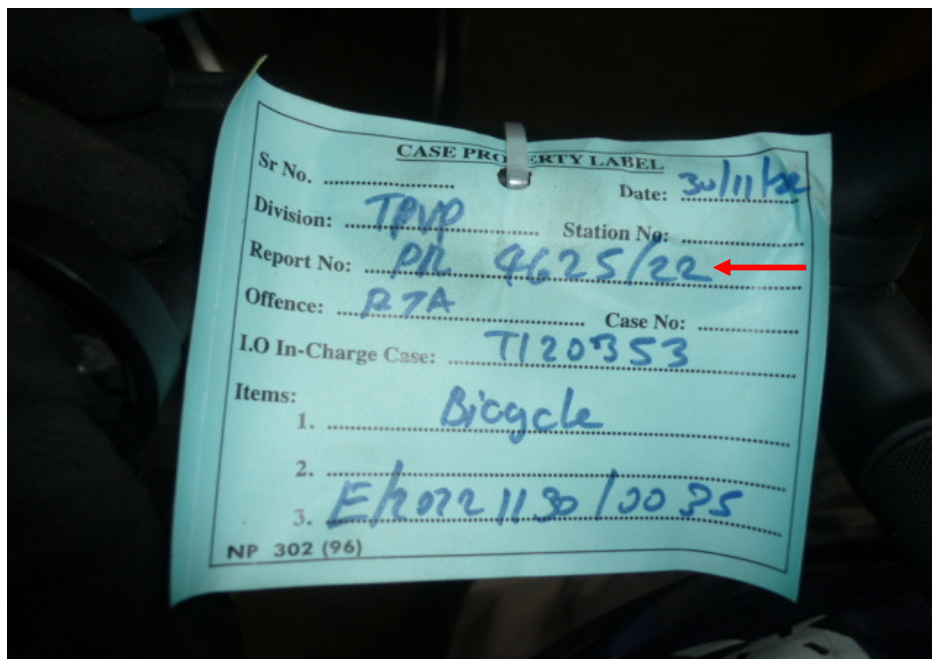 CASE PROPERTY LABEL
Sr No. Date: 30/11/22
Division: TPVP Station No:
Report No: PR 4625/22
Offence: RTA Case No:
I.O In-Charge Case: T120353
Items:
1. Bicycle
2.
3. E/20221130/0035
NP 302 (96)